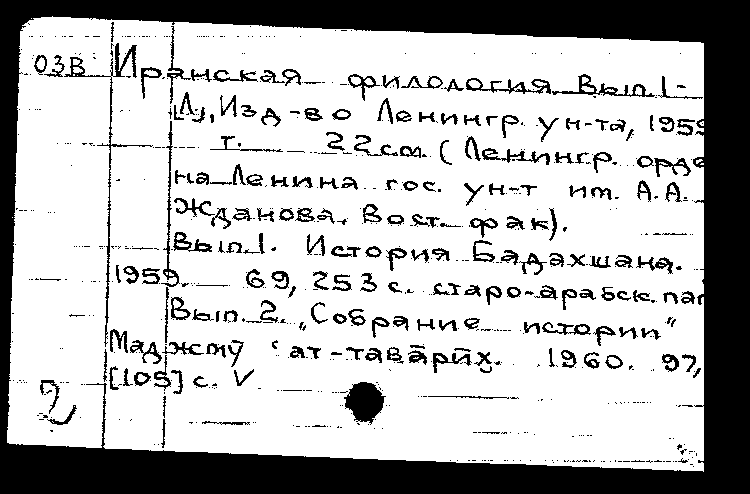 03В Иранская филология. Вып.1-
[Л], Изд-во Ленингр. ун-та, 1959
т. 22см. (Ленингр. орде
на Ленина гос. ун-т им. А.А.
Жданова. Вост. фак).
Вып.1. История Бадахшана.
1959. 69, 253 с. старо-арабск. паг
Вып. 2. „Собрание истории"
Маджмӯ ‘ат-тава̄рӣх. 1960. 97,
[105] с. V
2